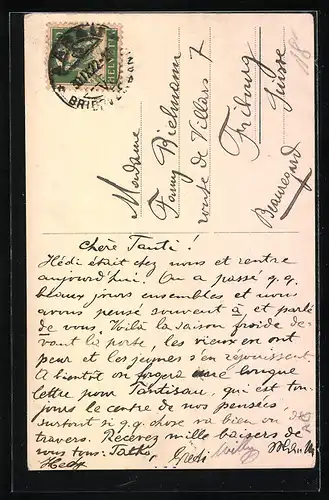 Madame
Fanny Biehmann
route de Villars 7
Fribourg
Suisse
Beauregard
18
HELVETIA
Chère Tanti!
Hédi était chez nous et rentre
aujourd'hui. On a passé q.q.
beaux jours ensembles et nous
avons pensé souvent à et parlé
de vous. Voilà la saison froide de-
vant la porte, les vieux en ont
peur et les jeunes s'en réjouissent.
A bientôt on forgera une longue
lettre pour Tantisau, qui est tou-
jours le centre de nos pensées,
surtout si q.q. chose va bien ou
travers. Recevez mille baisers de
nous tous:
Hedy Gredi Willy